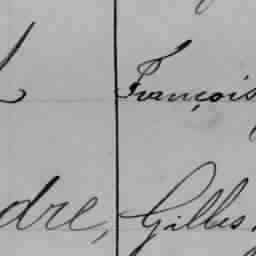 François
dre, Gilles.